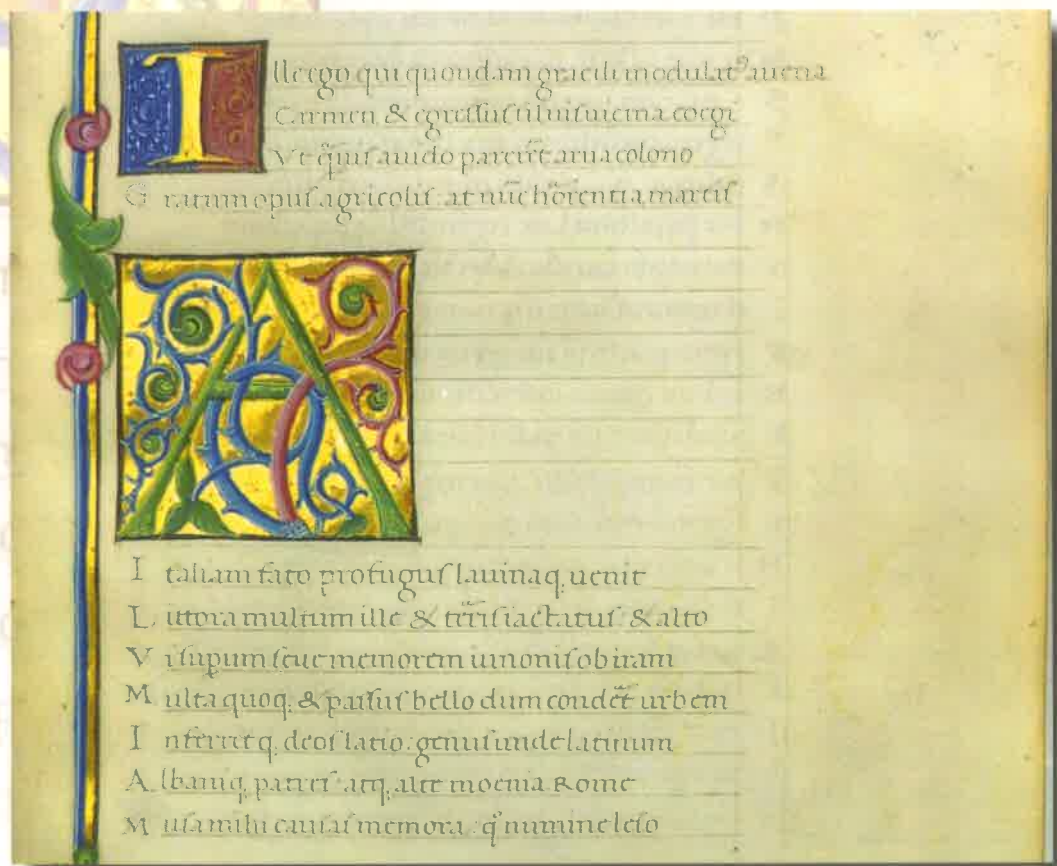 Ille ego qui quondam gracili modulatꝰ auena
Carmen & egressus siluis uicina coegi
Vt q̃uis auido parer̃et arua colono
Gratum opus agricolis: at nũc horrentia martis
A
Italiam fato profugus lauinaq. uenit
Littora multum ille & terris iactatus & alto
Vi supum seue memorem iunonis ob iram
Multa quoq. & passus bello dum conderet urbem
Inferretq. deos latio: genus unde latinum
Albaniq. patres atq. alte moenia Rome
Musa mihi causas memora: q̊ numine leso